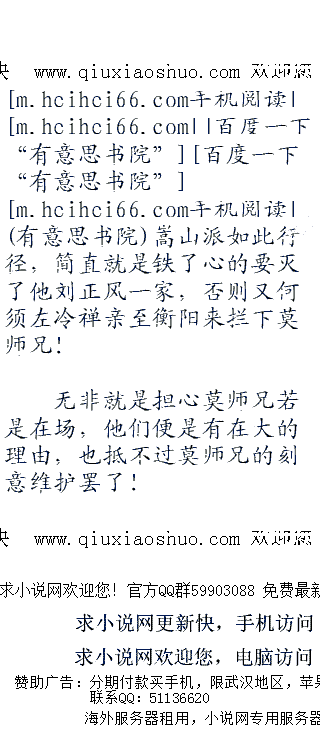 快 www.qiuxiaoshuo.com 欢迎您
[m.hcihci66.com手机阅读|
[m.hcihci66.com||百度一下
“有意思书院”][百度一下
“有意思书院”]
[m.hcihci66.com手机阅读|
(有意思书院)嵩山派如此行
径，简直就是铁了心的要灭
了他刘正风一家，否则又何
须左冷禅亲至衡阳来拦下莫
师兄！
无非就是担心莫师兄若
是在场，他们便是有在大的
理由，也抵不过莫师兄的刻
意维护罢了！
快 www.qiuxiaoshuo.com 欢迎您
求小说网欢迎您！官方QQ群59903088 免费最新
求小说网更新快，手机访问
求小说网欢迎您，电脑访问
赞助广告：分期付款买手机，限武汉地区，苹果
联系QQ：51136620
海外服务器租用，小说网专用服务器